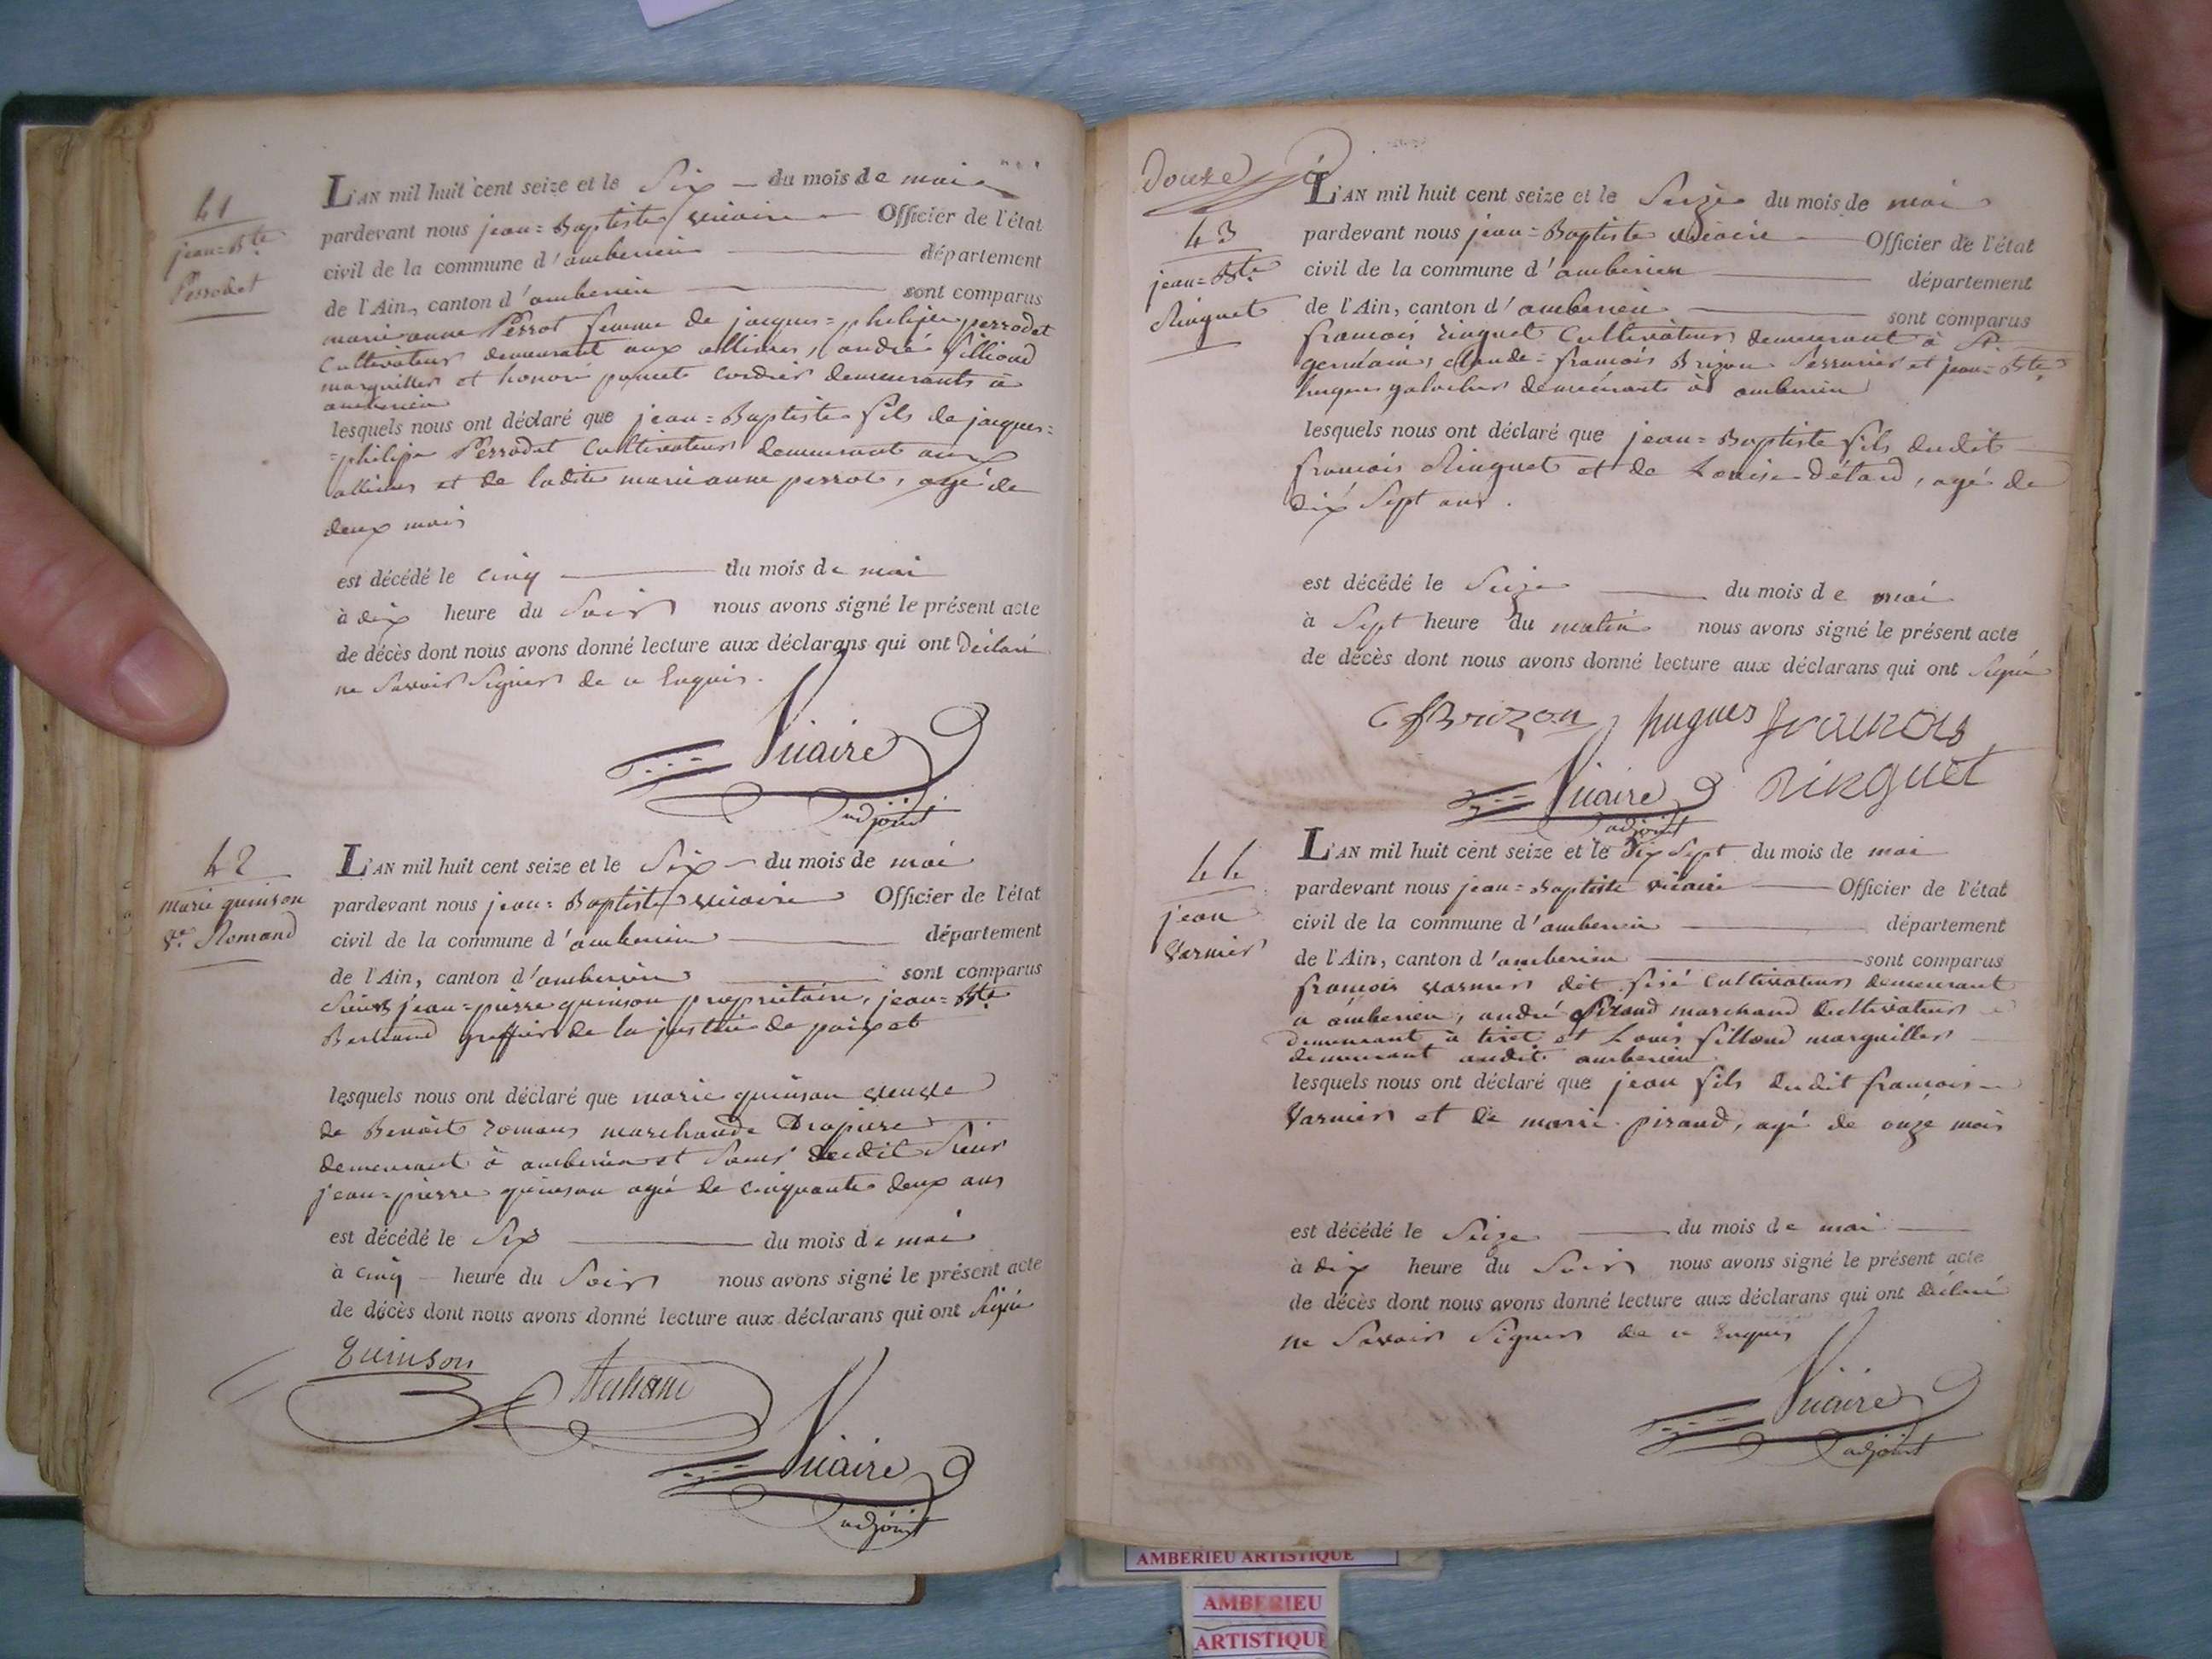 41
jean=Bte
Perrodet
L'AN mil huit cent seize et le Six du mois de mai
pardevant nous jean=Baptiste vicaire Officier de l'état
civil de la commune d'amberieu département
de l'Ain, canton d'amberieu sont comparus
marianne Perrot femme de jacques=philipe perrodet
Cultivateur demeurant aux allimes, andré fillioud
marguiller et honoré poncet cordier demeurants à
amberieu
lesquels nous ont déclaré que jean=Baptiste fils de jacques=
=philipe Perrodet Cultivateur demeurant aux
allimes et de ladite marianne perrot, agé de
deux mois
est décédé le cinq du mois de mai
à dix heure du Soir nous avons signé le présent acte
de décès dont nous avons donné lecture aux déclarans qui ont déclaré
ne Savoir Signer de ce Enquis.
Vicaire
adjoint
42
marie quinson
ve. Romand
L'AN mil huit cent seize et le Six du mois de mai
pardevant nous jean=Baptiste vicaire Officier de l'état
civil de la commune d'amberieu département
de l'Ain, canton d'amberieu sont comparus
Sieurs jean=pierre quinson propriétaire, jean=Bte
Bertrand greffier de la justice de paix et
lesquels nous ont déclaré que marie quinson veuve
de Benoit romans marchande Drapiere
demeurant à amberieu et Soeur dudit Sieur
jean=pierre quinson agé de cinquante deux ans
est décédé le Six du mois de mai
à cinq heure du Soir nous avons signé le présent acte
de décès dont nous avons donné lecture aux déclarans qui ont Signé
Quinson
Vicaire
adjoint
Douze
43
jean=Bte
Ringuet
L'AN mil huit cent seize et le Seize du mois de mai
pardevant nous jean=Baptiste vicaire Officier de l'état
civil de la commune d'amberieu département
de l'Ain, canton d'amberieu sont comparus
francois ringuet Cultivateur demeurant à St.
germain, claude=francois Brizon Serrurier et jean=Bte
hugues demeurants à amberieu
lesquels nous ont déclaré que jean=Baptiste fils dudit
francois Ringuet et de Louise Détard, agé de
dix Sept ans.
est décédé le Seize du mois de mai
à Sept heure du matin nous avons signé le présent acte
de décès dont nous avons donné lecture aux déclarans qui ont Signé
Brizon hugues francois
Vicaire Ringuet
adjoint
44
jean
Varnier
L'AN mil huit cent seize et le dix Sept du mois de mai
pardevant nous jean=Baptiste vicaire Officier de l'état
civil de la commune d'amberieu département
de l'Ain, canton d'amberieu sont comparus
francois varnier dit Cultivateur demeurant
a amberieu, andré Piraud marchand Cultivateur
demeurant à tiret et Louis fillioud marguiller
demeurant audit amberieu
lesquels nous ont déclaré que jean fils dudit francois
Varnier et de marie piraud, agé de onze mois
est décédé le Seize du mois de mai
à dix heure du Soir nous avons signé le présent acte
de décès dont nous avons donné lecture aux déclarans qui ont déclaré
ne Savoir Signer de ce Enquis
Vicaire
adjoint
AMBERIEU ARTISTIQUE
AMBERIEU
ARTISTIQUE